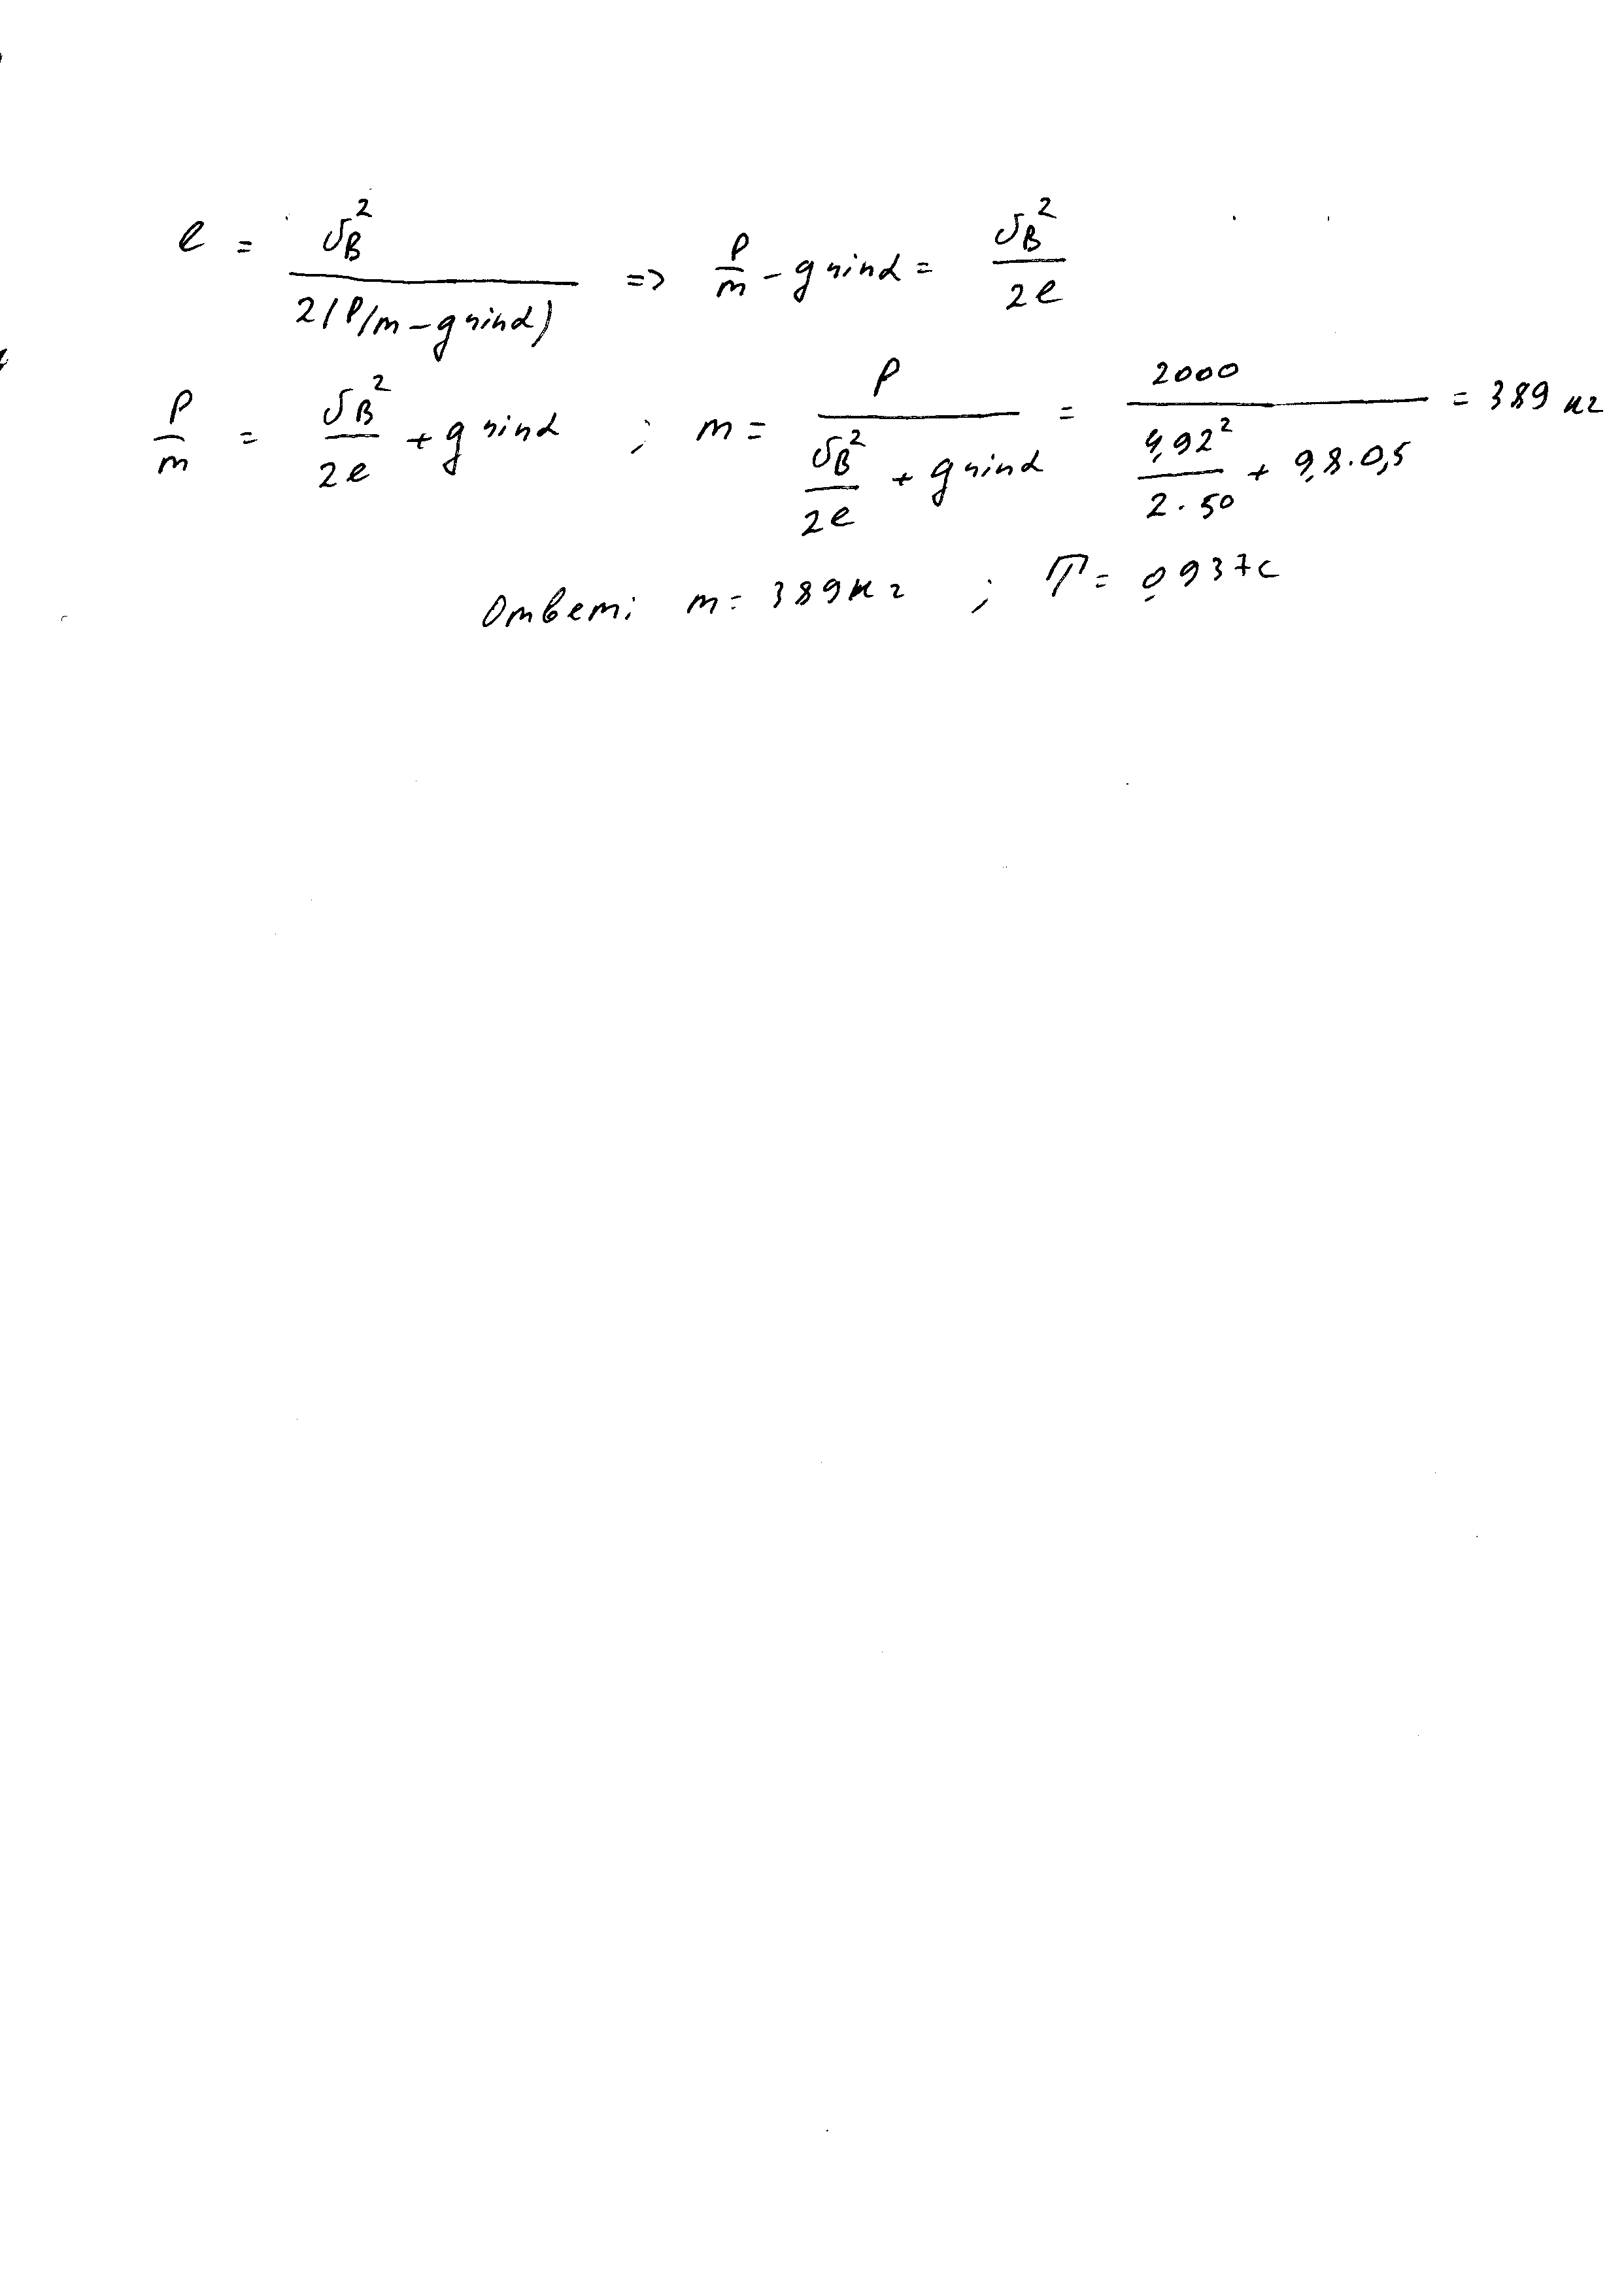 l = υ_B² / 2(P/m – g sinα) => P/m – g sinα = υ_B² / 2l
P/m = υ_B² / 2l + g sinα ; m = P / (υ_B² / 2l + g sinα) = 2000 / (4,92² / 2·50 + 9,8·0,5) = 389 кг
Ответ: m = 389 кг ; T = 0,937с